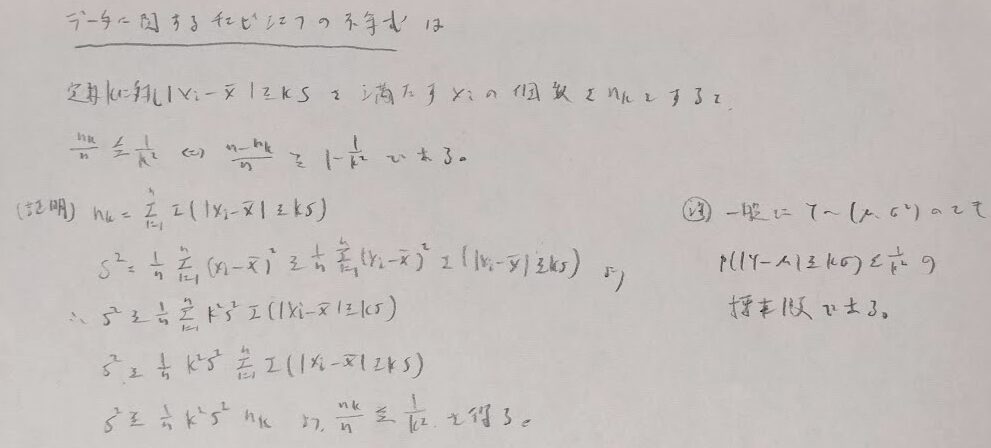 データに関するチェビシェフの不等式は
定数kに対し |xi - x̄| ≧ ks を満たす xi の個数を nk とすると、
nk/n ≦ 1/k² ⇔ (n - nk)/n ≧ 1 - 1/k² である。
(証明) nk = Σ_{i=1}^{n} I(|xi - x̄| ≧ ks)
s² = 1/n Σ_{i=1}^{n} (xi - x̄)² ≧ 1/n Σ_{i=1}^{n} (xi - x̄)² I(|xi - x̄| ≧ ks) より
∴ s² ≧ 1/n Σ_{i=1}^{n} k²s² I(|xi - x̄| ≧ ks)
s² ≧ 1/n k²s² Σ_{i=1}^{n} I(|xi - x̄| ≧ ks)
s² ≧ 1/n k²s² nk より, nk/n ≦ 1/k² を得る。
(注) 一般に Y ~ (μ, σ²) のとき
P(|Y - μ| ≧ kσ) ≦ 1/k² の
標本版である。